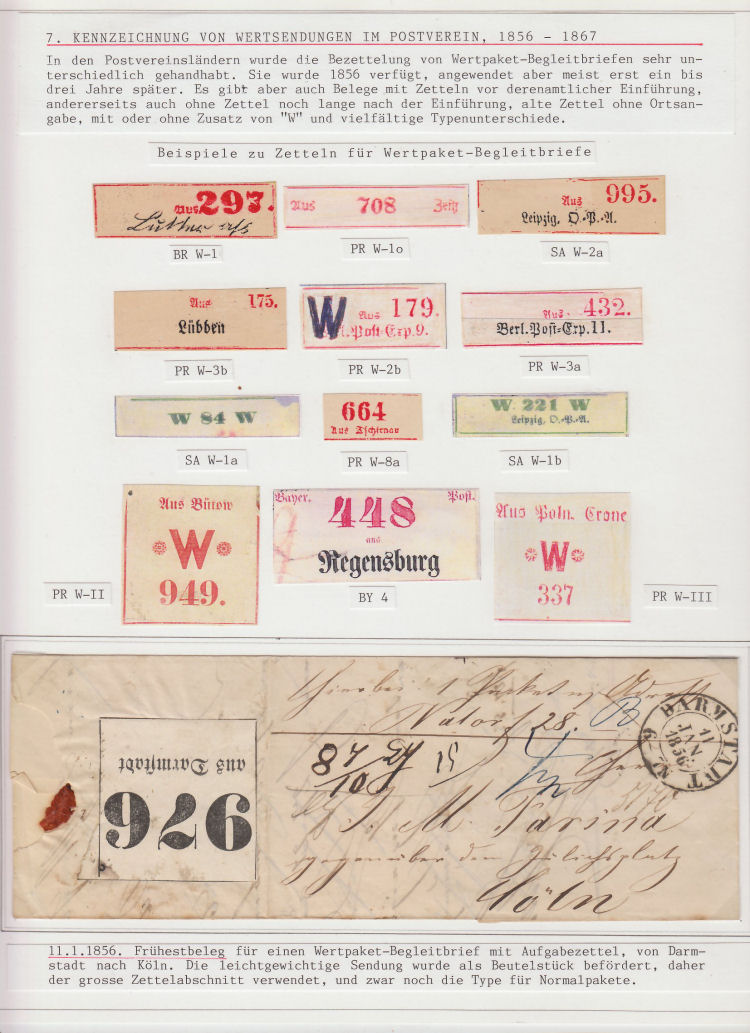 7. KENNZEICHNUNG VON WERTSENDUNGEN IM POSTVEREIN, 1856 - 1867
In den Postvereinsländern wurde die Bezettelung von Wertpaket-Begleitbriefen sehr un-
terschiedlich gehandhabt. Sie wurde 1856 verfügt, angewendet aber meist erst ein bis
drei Jahre später. Es gibt aber auch Belege mit Zetteln vor derenamtlicher Einführung,
andererseits auch ohne Zettel noch lange nach der Einführung, alte Zettel ohne Ortsan-
gabe, mit oder ohne Zusatz von "W" und vielfältige Typenunterschiede.
Beispiele zu Zetteln für Wertpaket-Begleitbriefe
Aus 297.
BR W-1
Aus 708 Zeitz
PR W-1o
Aus 995.
Leipzig, O.-P.-A.
SA W-2a
Aus 175.
Lübben
PR W-3b
W Aus 179.
Berl. Post-Exp. 9.
PR W-2b
Aus 432.
Berl. Post-Exp. 11.
PR W-3a
W 84 W
SA W-1a
664
Aus Tschirnau
PR W-8a
W 221 W
Leipzig, O.-P.-A.
SA W-1b
Aus Bütow
W
949.
PR W-II
Bayer. 448 Post.
aus
Regensburg
BY 4
Aus Poln. Crone
W
337
PR W-III
976
aus Darmstadt
DARMSTADT
11
JAN
1856
J. M. Farina
gegenüber dem Jülichsplatz
Cöln
11.1.1856. Frühestbeleg für einen Wertpaket-Begleitbrief mit Aufgabezettel, von Darm-
stadt nach Köln. Die leichtgewichtige Sendung wurde als Beutelstück befördert, daher
der grosse Zettelabschnitt verwendet, und zwar noch die Type für Normalpakete.